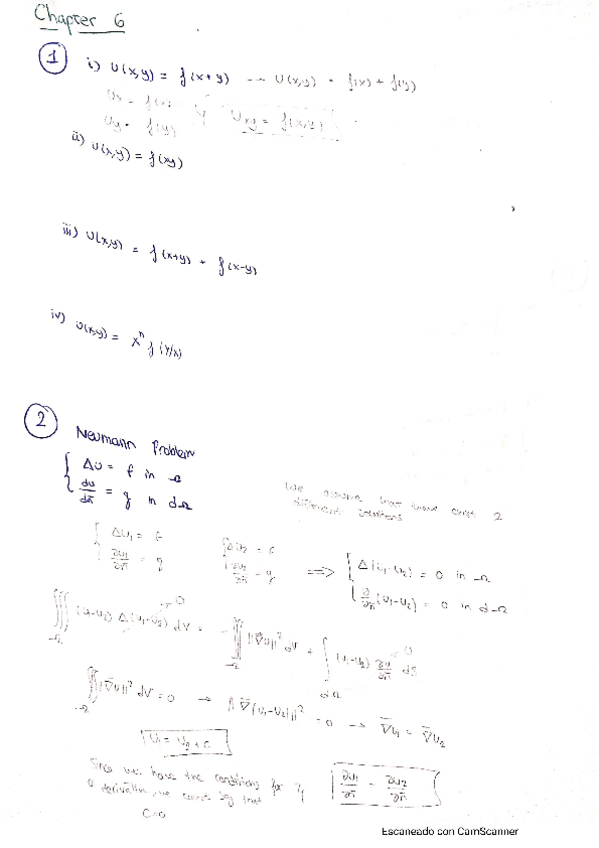 Chapter 6
1 i) U(x,y) = f(x+y) -- U(x,y) = f(x) + f(y)
Ux = f(x)
Uy = f(y) Uxy = f(x,y)
ii) U(x,y) = f(xy)
iii) U(x,y) = f(x+y) + f(x-y)
iv) U(x,y) = xⁿ f(y/x)
2 Neumann Problem
{ Δu = f in Ω
du/dn̄ = g in dΩ
We assume that there exist 2
different solutions
{ Δu₁ = f
∂u₁/∂n̄ = g
{ Δu₂ = f
∂u₂/∂n̄ = g
==> { Δ(u₁-u₂) = 0 in Ω
∂/∂n̄ (u₁-u₂) = 0 in dΩ
∭_Ω (u₁-u₂) Δ(u₁-u₂) dV = -∭_Ω ||∇̄u||² dV + ∫_dΩ (u₁-u₂) ∂u/∂n̄ dS
∭_Ω ||∇̄u||² dV = 0 → ||∇̄(u₁-u₂)||² = 0 → ∇̄u₁ = ∇̄u₂
u₁ = u₂ + C
Since we have the conditions for
a derivative, we cannot say that
C=0
∂u₁/∂n̄ = ∂u₂/∂n̄
Escaneado con CamScanner